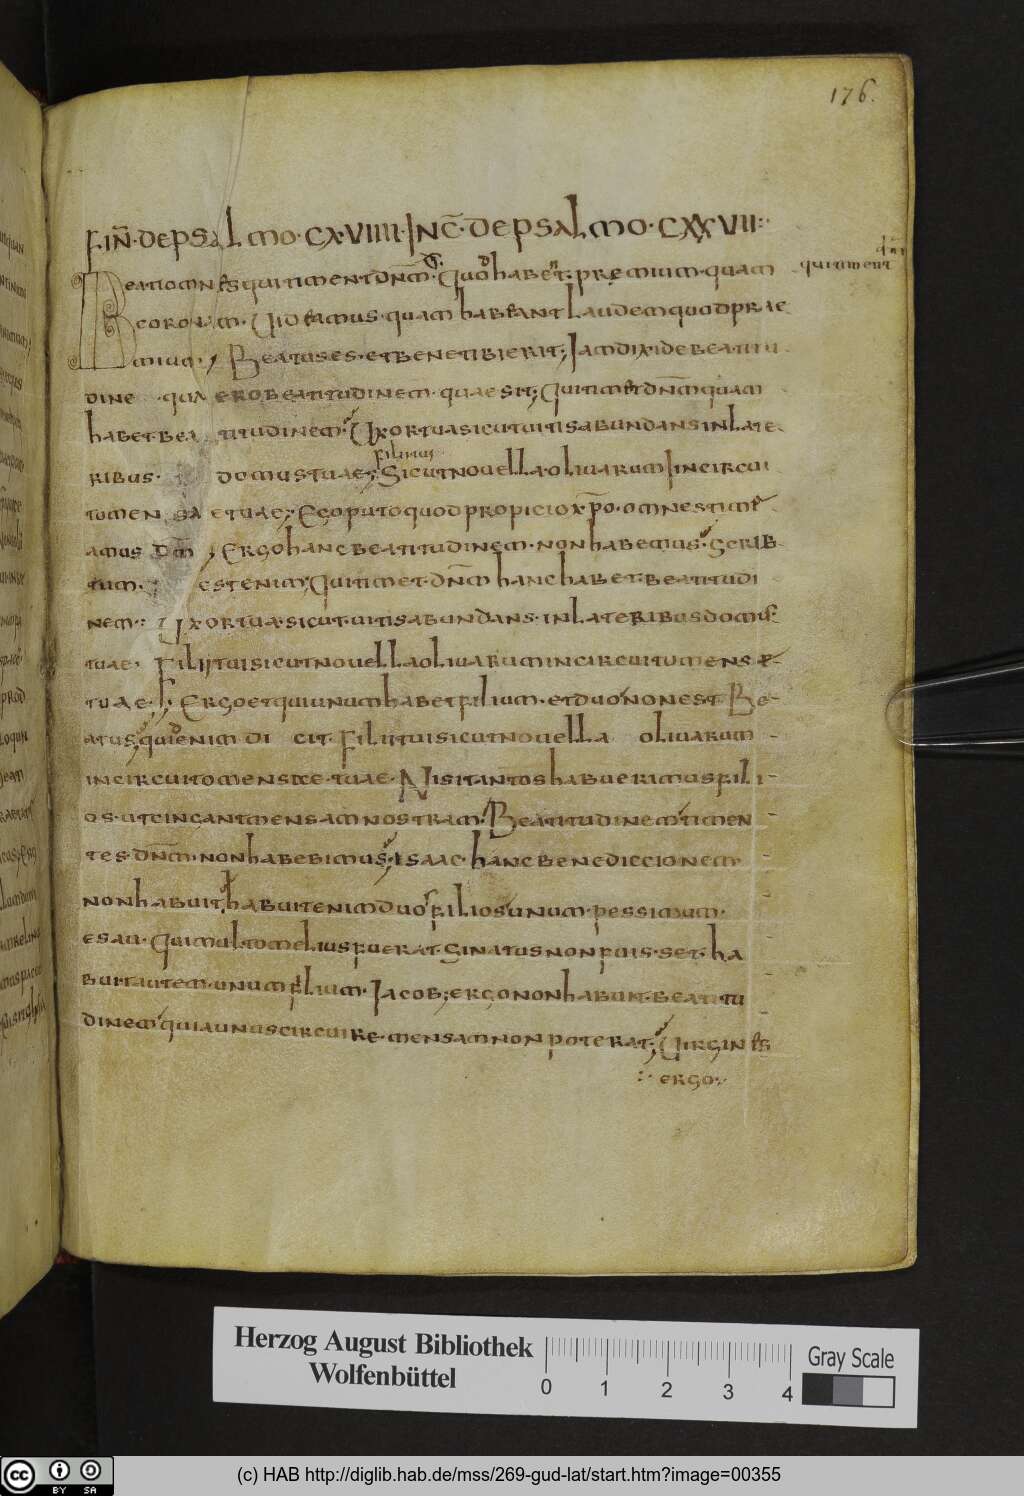 176.
FIN̄·DE PSALMO·CXVIIII·INC̄·DE PSALMO·CXXVII:·
BEATI OMNES QUI TIMENT DN̄M·QUOD HABENT·PREMIUM·QUAM
qui timent dn̄m
CORONAM·VIDEAMUS·QUAM HABEANT LAUDEM QUOD PRAE
MIUM; BEATUS ES·ET BENE TIBI ERIT; IAM DIXI DE BEATITU
DINE QUAERO BEATITUDINEM·QUAE SIT; QUI TIMET DN̄M QUAM
HABET BEATITUDINEM; UXOR TUA SICUT UITIS ABUNDANS IN LATE
RIBUS· DOMUS TUAE; SICUT NOUELLA·OLIUARUM IN CIRCUI
filii tui
TO MENSAE TUAE; EGO PUTO QUOD PROPICIO XP̄O·OMNES TIME
AMUS DN̄M; ERGO HANC BEATITUDINEM·NON HABEMUS; SCRIB
TUM· EST ENIM; QUI TIMET·DN̄M HANC HABET·BEATITUDI
NEM:· UXOR TUA·SICUT·UITIS ABUNDANS·IN LATERIBUS DOMUS
TUAE· FILII TUI SICUT NOUELLA OLIUARUM IN CIRCUITU MENSE
TUAE·; ERGO ET QUI UNUM HABET FILIUM·ET DUO NON EST BE
ATUS; QUID ENIM DICIT·FILII TUI SICUT NOUELLA OLIUARUM
IN CIRCUITO MENSAE·TUAE·NISI TANTOS HABUERIMUS FILI
OS·UT CINGANT MENSAM NOSTRAM; BEATITUDINEM TIMEN
TES·DN̄M·NON HABEBIMUS; ISAAC·HANC BENEDICCIONEM
NON HABUIT; HABUIT ENIM DUOS FILIOS UNUM·PESSIMUM·
ESAU·QUI MULTO MELIUS FUERAT·SI NATUS NON FUIS·SET·HA
BUIT AUTEM·UNUM FILIUM·IACOB; ERGO NON HABUIT·BEATITU
DINEM QUIA UNUS CIRCUIRE·MENSAM NON POTERAT; UIRGINES
:· ERGO·
Herzog August Bibliothek
Wolfenbüttel
0 1 2 3 4
Gray Scale
cc BY SA
(c) HAB http://diglib.hab.de/mss/269-gud-lat/start.htm?image=00355